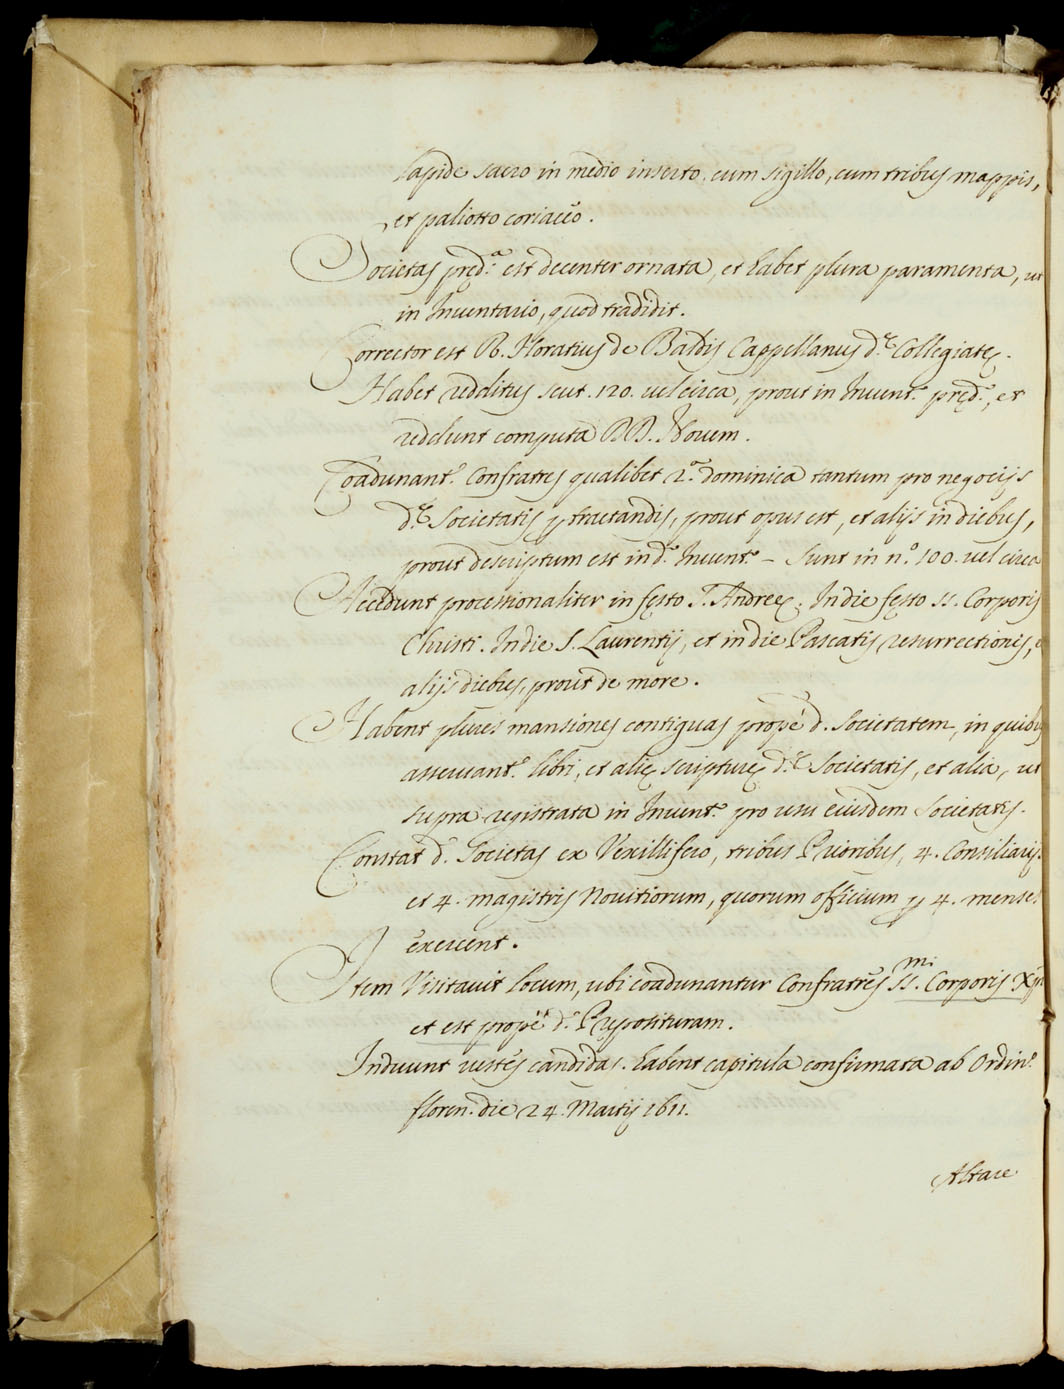 lapide sacro in medio inserto, cum sigillo, cum tribus mappis,
et paliotto coriaceo.
Societas pręd.ª est decenter ornata, et habet plura paramenta, ut
in Inventario, quod tradidit.
Corrector est R. Horatius de Baldis Cappellanus d.ę Collegiatę.
Habet redditus scut. 120. vel circa, prout in Invent.º pręd.º, et
reddunt computa DD. Novem.
Coadunant.r Confratres qualibet 2.ª dominica tantum pro negocijs
d.ę Societatis ꝑtractandis, prout opus est, et alijs in diebus,
prout descriptum est in d.º Invent.º - Sunt in n.º 100. vel circa
Accedunt processionaliter in festo S. Andreę. In die festo SS. Corporis
Christi. In die S. Laurentij, et in die Pascatis resurrectionis,
alijs diebus, prout de more.
Habent plures mansiones contiguas propè d. Societatem, in quibus
asservant.r libri, et alię scripturę d.ę Societatis, et alia, ut
supra registrata in Invent.º pro usu eiusdem Societatis.
Constat d.ª Societas ex Vexillifero, tribus Prioribus, 4. Consiliarijs
et 4. magistris Novitiorum, quorum officium ꝑ 4. menses
exercent.
Item Visitavit locum, ubi coadunantur Confratres SS.mi Corporis Xp̄i
et est propè d.ª Prepositituram.
Induunt vestes candidas. habent capitula confirmata ab Ordin.º
floren.º die 24. Martij 1611.
Altare